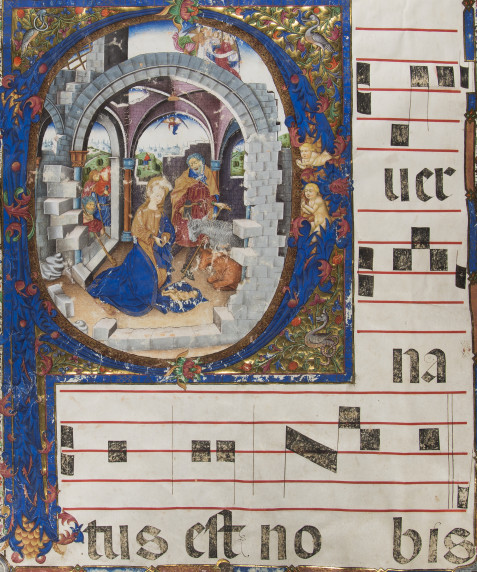 uer
na
tus est no bis